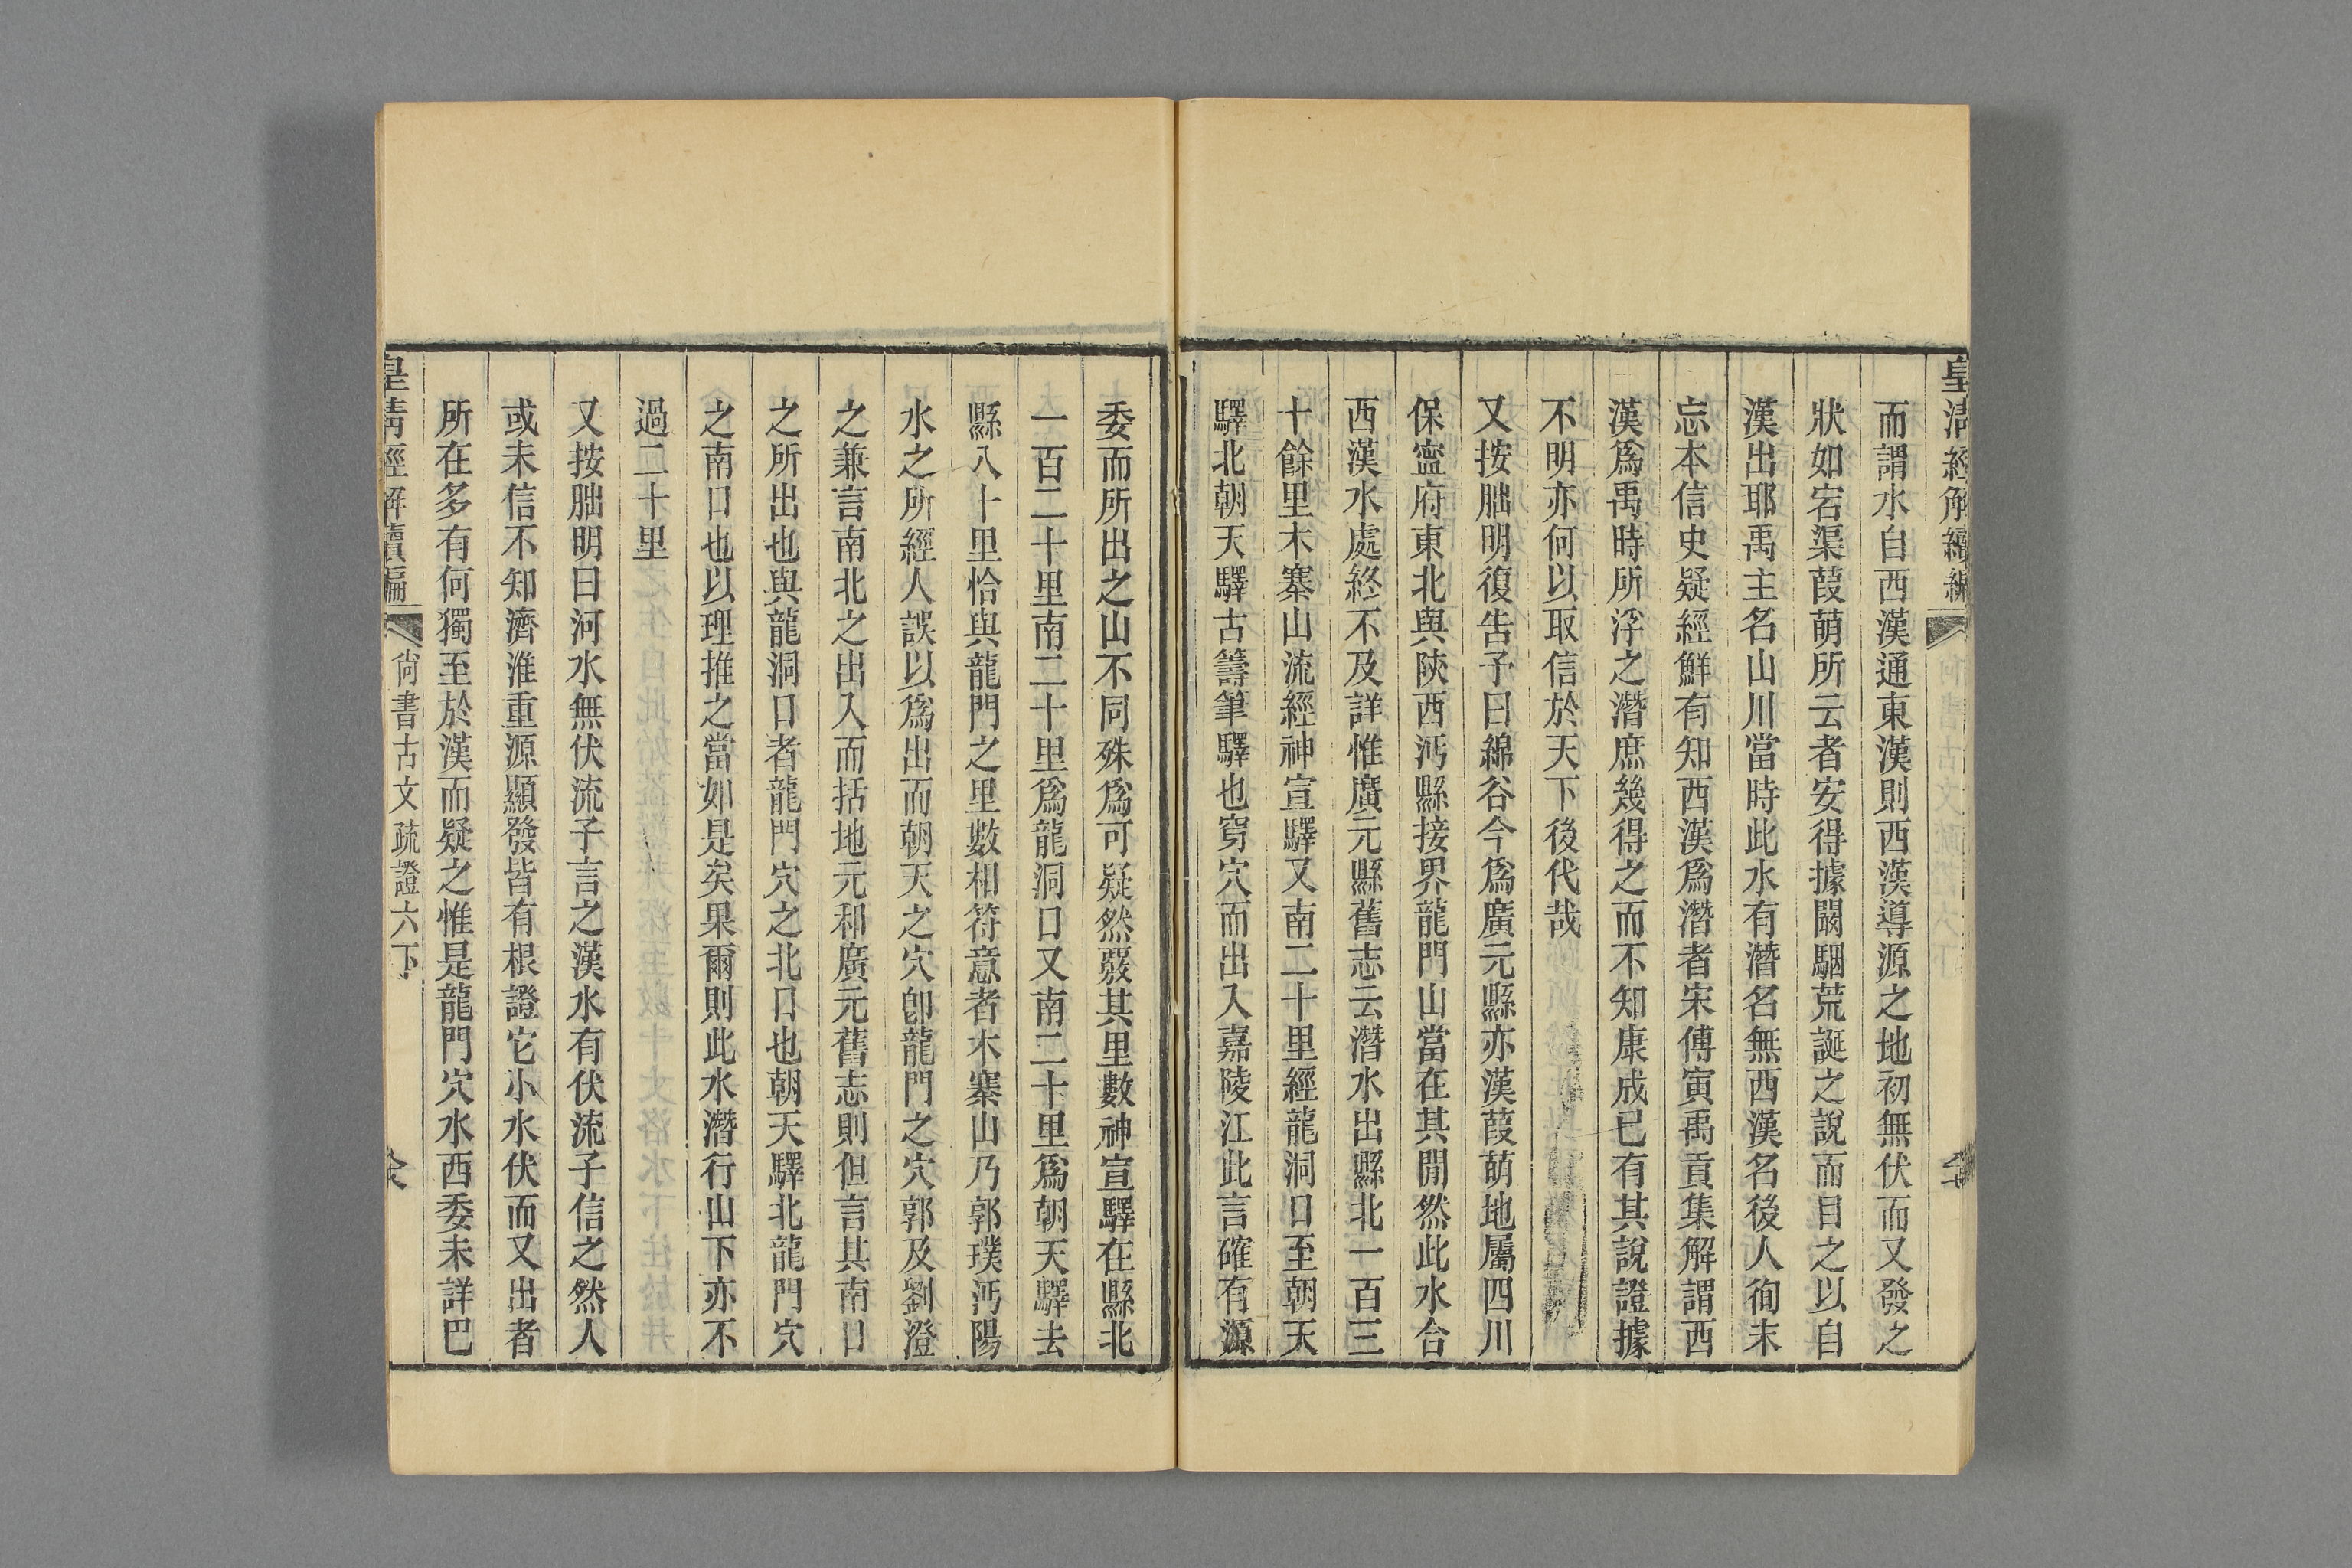 皇清經解續編
而謂水自西漢通東漢則西漢導源之地初無伏而又發之
狀如宕渠葭萌所云者安得據闞駰荒誕之說而目之以自
漢出耶禹主名山川當時此水有潛名無西漢名後人徇末
忘本信史疑經鮮有知西漢爲潛者宋傅寅禹貢集解謂西
漢爲禹時所浮之潛庶幾得之而不知康成已有其說證據
不明亦何以取信於天下後代哉
又按朏明復告予曰綿谷今爲廣元縣亦漢葭萌地屬四川
保寧府東北與陝西沔縣接界龍門山當在其閒然此水合
西漢水處終不及詳惟廣元縣舊志云潛水出縣北一百三
十餘里木寨山流經神宣驛又南二十里經龍洞口至朝天
驛北朝天驛古籌筆驛也穿穴而出入嘉陵江此言確有源
委而所出之山不同殊爲可疑然覈其里數神宣驛在縣北
一百二十里南二十里爲龍洞口又南二十里爲朝天驛去
縣八十里恰與龍門之里數相符意者木寨山乃郭璞沔陽
水之所經人誤以爲出而朝天之穴卽龍門之穴郭及劉澄
之兼言南北之出入而括地元和廣元舊志則但言其南口
之所出也與龍洞口者龍門穴之北口也朝天驛北龍門穴
之南口也以理推之當如是矣果爾則此水潛行山下亦不
過二十里
又按朏明曰河水無伏流子言之漢水有伏流子信之然人
或未信不知濟淮重源顯發皆有根證它小水伏而又出者
所在多有何獨至於漢而疑之惟是龍門穴水西委未詳巴
皇清經解續編
尚書古文疏證六下